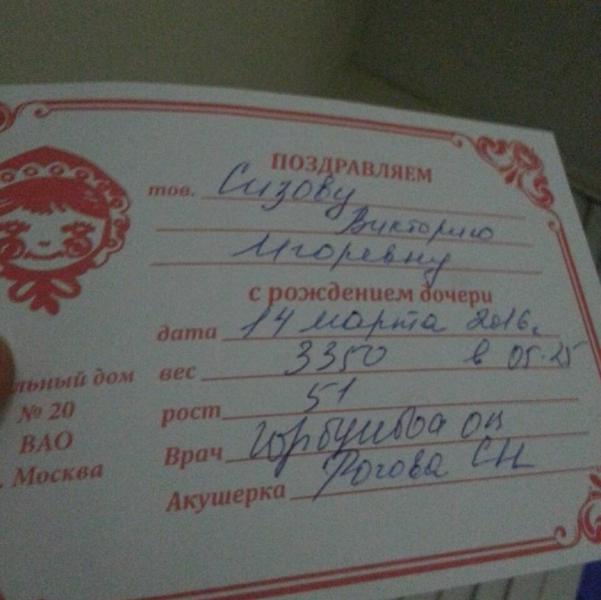 ПОЗДРАВЛЯЕМ
тов. Сизову
Викторию
Игоревну
с рождением дочери
дата 14 марта 2016г.
вес 3350 в 05.25
рост 51
Врач
Акушерка Рогова СН
льный дом
№ 20
ВАО
Москва